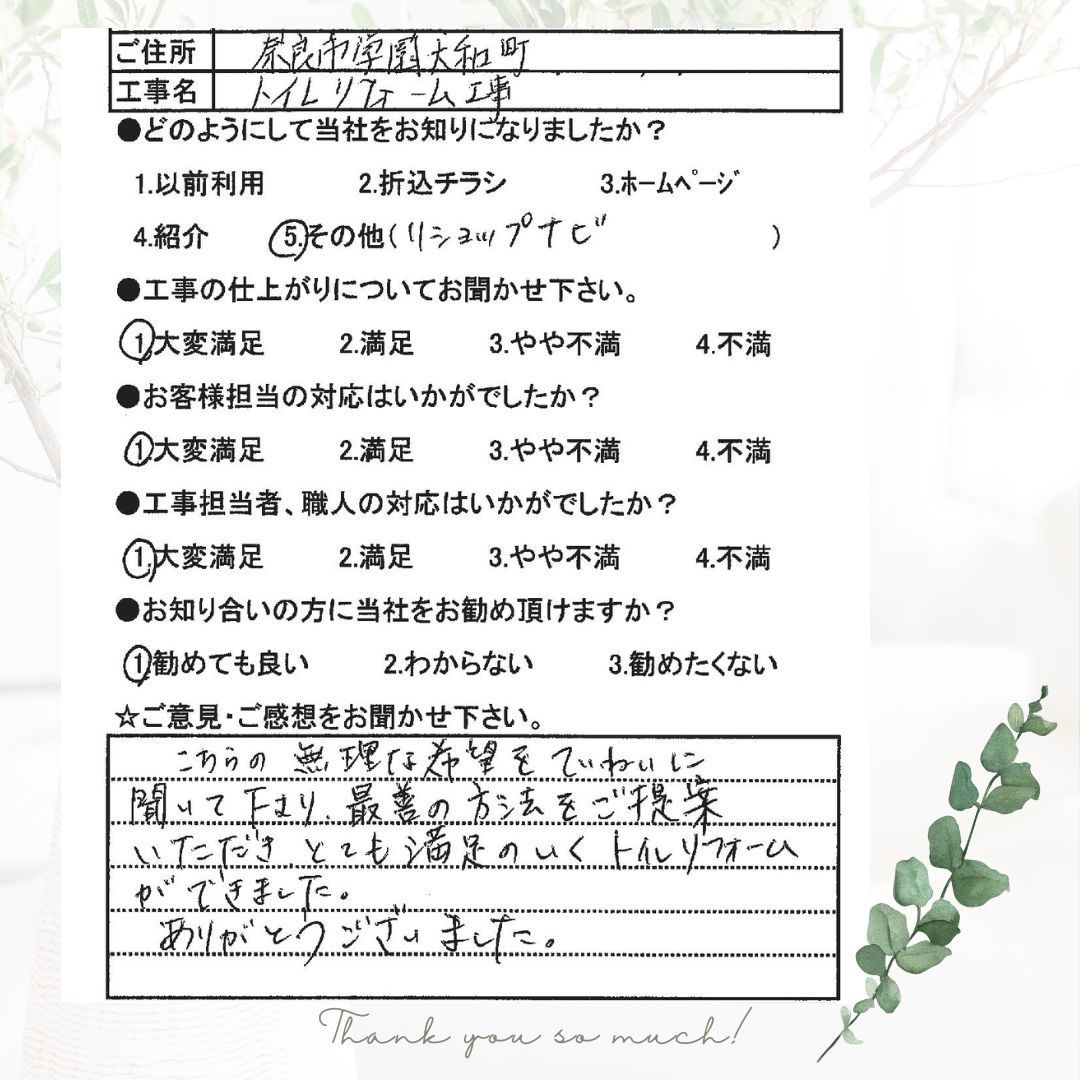 ご住所 奈良市学園大和町
工事名 トイレリフォーム工事
●どのようにして当社をお知りになりましたか？
1.以前利用 2.折込チラシ 3.ホームページ
4.紹介 5.その他(リショップナビ )
●工事の仕上がりについてお聞かせ下さい。
1.大変満足 2.満足 3.やや不満 4.不満
●お客様担当の対応はいかがでしたか？
1.大変満足 2.満足 3.やや不満 4.不満
●工事担当者、職人の対応はいかがでしたか？
1.大変満足 2.満足 3.やや不満 4.不満
●お知り合いの方に当社をお勧め頂けますか？
1.勧めても良い 2.わからない 3.勧めたくない
☆ご意見・ご感想をお聞かせ下さい。
こちらの無理な希望をていねいに
聞いて下さり、最善の方法をご提案
いただき、とても満足のいくトイレリフォーム
ができました。
ありがとうございました。
Thank you so much!